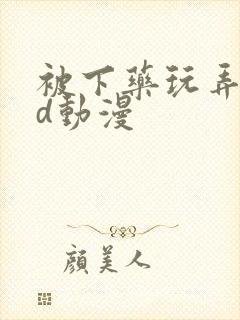 被下藥玩弄
d動漫
顔美人